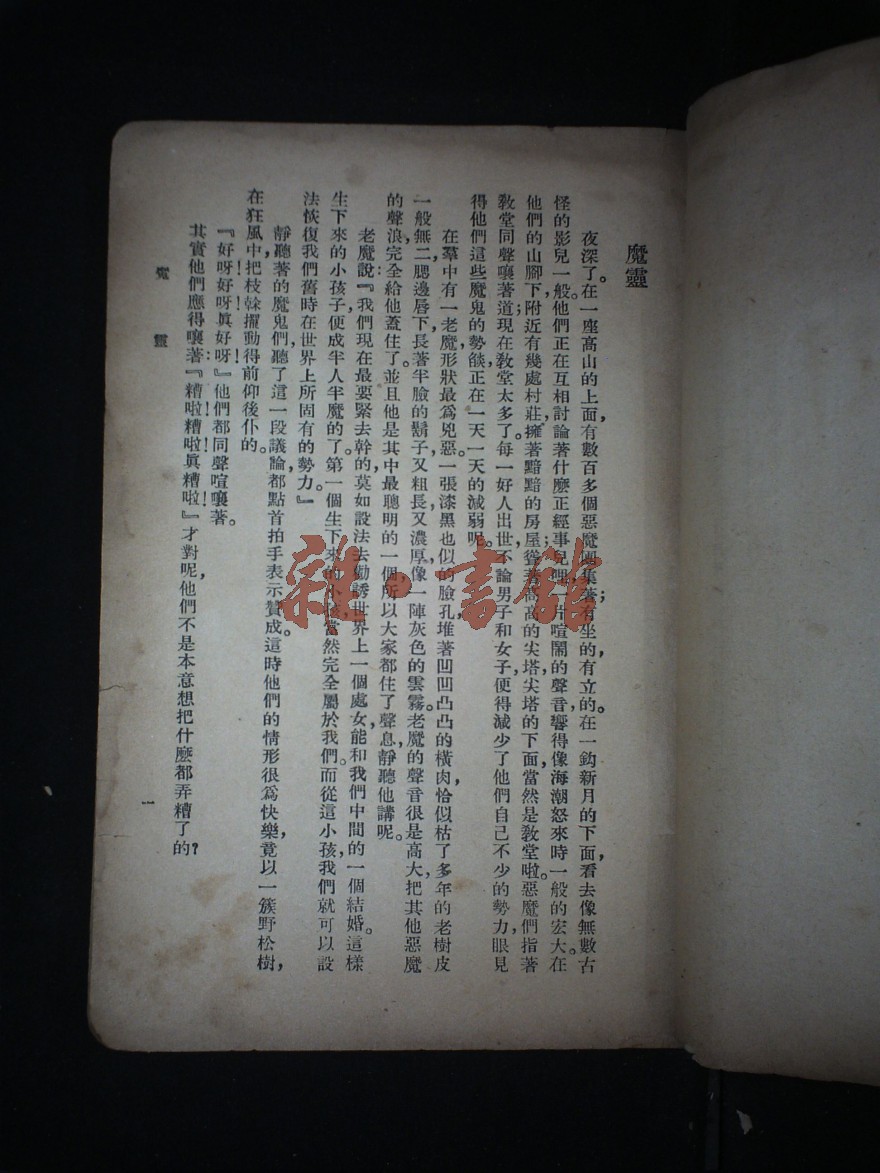 魔靈
夜深了。在一座高山的上面，有數百多個惡魔團集著；有坐的，有立的。在一鈎新月的下面，看去像無數古
怪的影兒一般。他們正在互相討論著什麼正經事兒哩；一片喧鬧的聲音，響得像海潮怒來時一般的宏大。在
他們的山腳下附近有幾處村莊，擁著黯黯的房屋，聳著高高的尖塔；尖塔的下面，當然是教堂啦。惡魔們指著
教堂同聲嚷著道：現在教堂太多了。每一好人出世，不論男子和女子，便得減少了他們自己不少的勢力，眼見
得他們這些魔鬼的勢燄正在一天一天的減弱呢。
在羣中有一老魔形狀最爲兇惡。一張漆黑也似的臉孔，堆著凹凹凸凸的橫肉，恰似枯了多年的老樹皮
一般無二；腮邊唇下，長著半臉的鬍子，又粗長，又濃厚，像一陣灰色的雲霧。老魔的聲音很是高大，把其他惡魔
的聲浪，完全給他蓋住了。並且他是其中最聰明的一個，所以大家都住了聲息，靜聽他講呢。
老魔說：『我們現在最要緊去幹的，莫如設法去勸誘世界上一個處女，能和我們中間的一個結婚。這樣
生下來的小孩子，便成半人半魔的了。第一個生下來的小孩，當然完全屬於我們。而從這小孩，我們就可以設
法恢復我們舊時在世界上所固有的勢力。』
靜聽著的魔鬼們，聽了這一段議論，都點首拍手表示贊成。這時他們的情形很爲快樂，竟以一簇野松樹，
在狂風中把枝榦擺動得前仰後仆的。
『好呀！好呀！眞好呀！』他們都同聲喧嚷著。
其實他們應得嚷著：『糟啦！糟啦！眞糟啦！』才對呢，他們不是本意想把什麼都弄糟了的？
魔靈
一
雜·書館